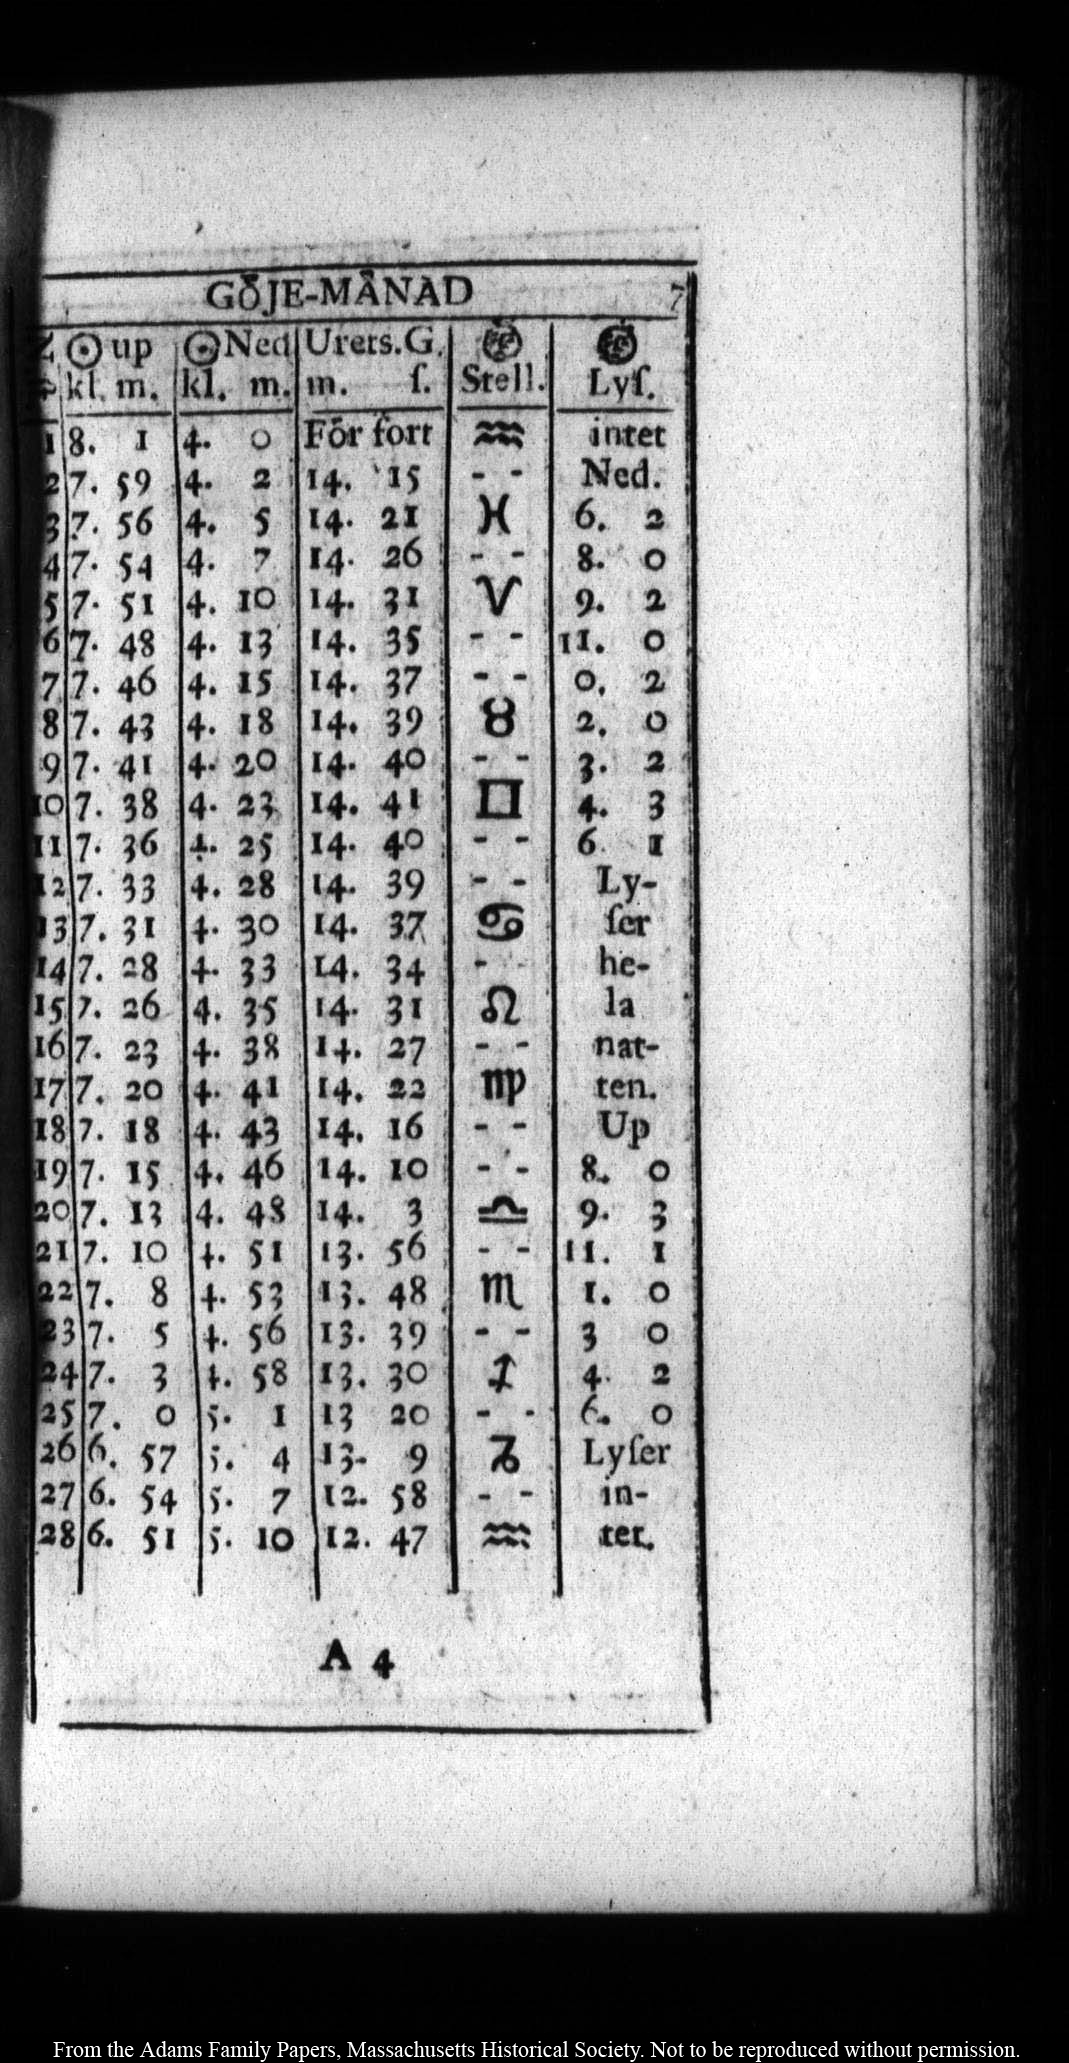 GÖJE-MÅNAD 7
☉ up ☉ Ned Urets.G.
kl. m. kl. m. m. ſ. Stell. Lyſ.
1 8. 1 4. 0 För fort ♒ intet
2 7. 59 4. 2 14. 15 - - Ned.
3 7. 56 4. 5 14. 21 ♓ 6. 2
4 7. 54 4. 7 14. 26 - - 8. 0
5 7. 51 4. 10 14. 31 ♈ 9. 2
6 7. 48 4. 13 14. 35 - - 11. 0
7 7. 46 4. 15 14. 37 - - 0. 2
8 7. 43 4. 18 14. 39 ♉ 2. 0
9 7. 41 4. 20 14. 40 - - 3. 2
10 7. 38 4. 23 14. 41 ♊ 4. 3
11 7. 36 4. 25 14. 40 - - 6. 1
12 7. 33 4. 28 14. 39 - - Ly-
13 7. 31 4. 30 14. 37 ♋ ſer
14 7. 28 4. 33 14. 34 - - he-
15 7. 26 4. 35 14. 31 ♌ la
16 7. 23 4. 38 14. 27 - - nat-
17 7. 20 4. 41 14. 22 ♍ ten.
18 7. 18 4. 43 14. 16 - - Up
19 7. 15 4. 46 14. 10 - - 8. 0
20 7. 13 4. 48 14. 3 ♎ 9. 3
21 7. 10 4. 51 13. 56 - - 11. 1
22 7. 8 4. 53 13. 48 ♏ 1. 0
23 7. 5 4. 56 13. 39 - - 3 0
24 7. 3 4. 58 13. 30 ♐ 4. 2
25 7. 0 5. 1 13 20 - - 6. 0
26 6. 57 5. 4 13. 9 ♑ Lyſer
27 6. 54 5. 7 12. 58 - - in-
28 6. 51 5. 10 12. 47 ♒ tet.
A 4
From the Adams Family Papers, Massachusetts Historical Society. Not to be reproduced without permission.